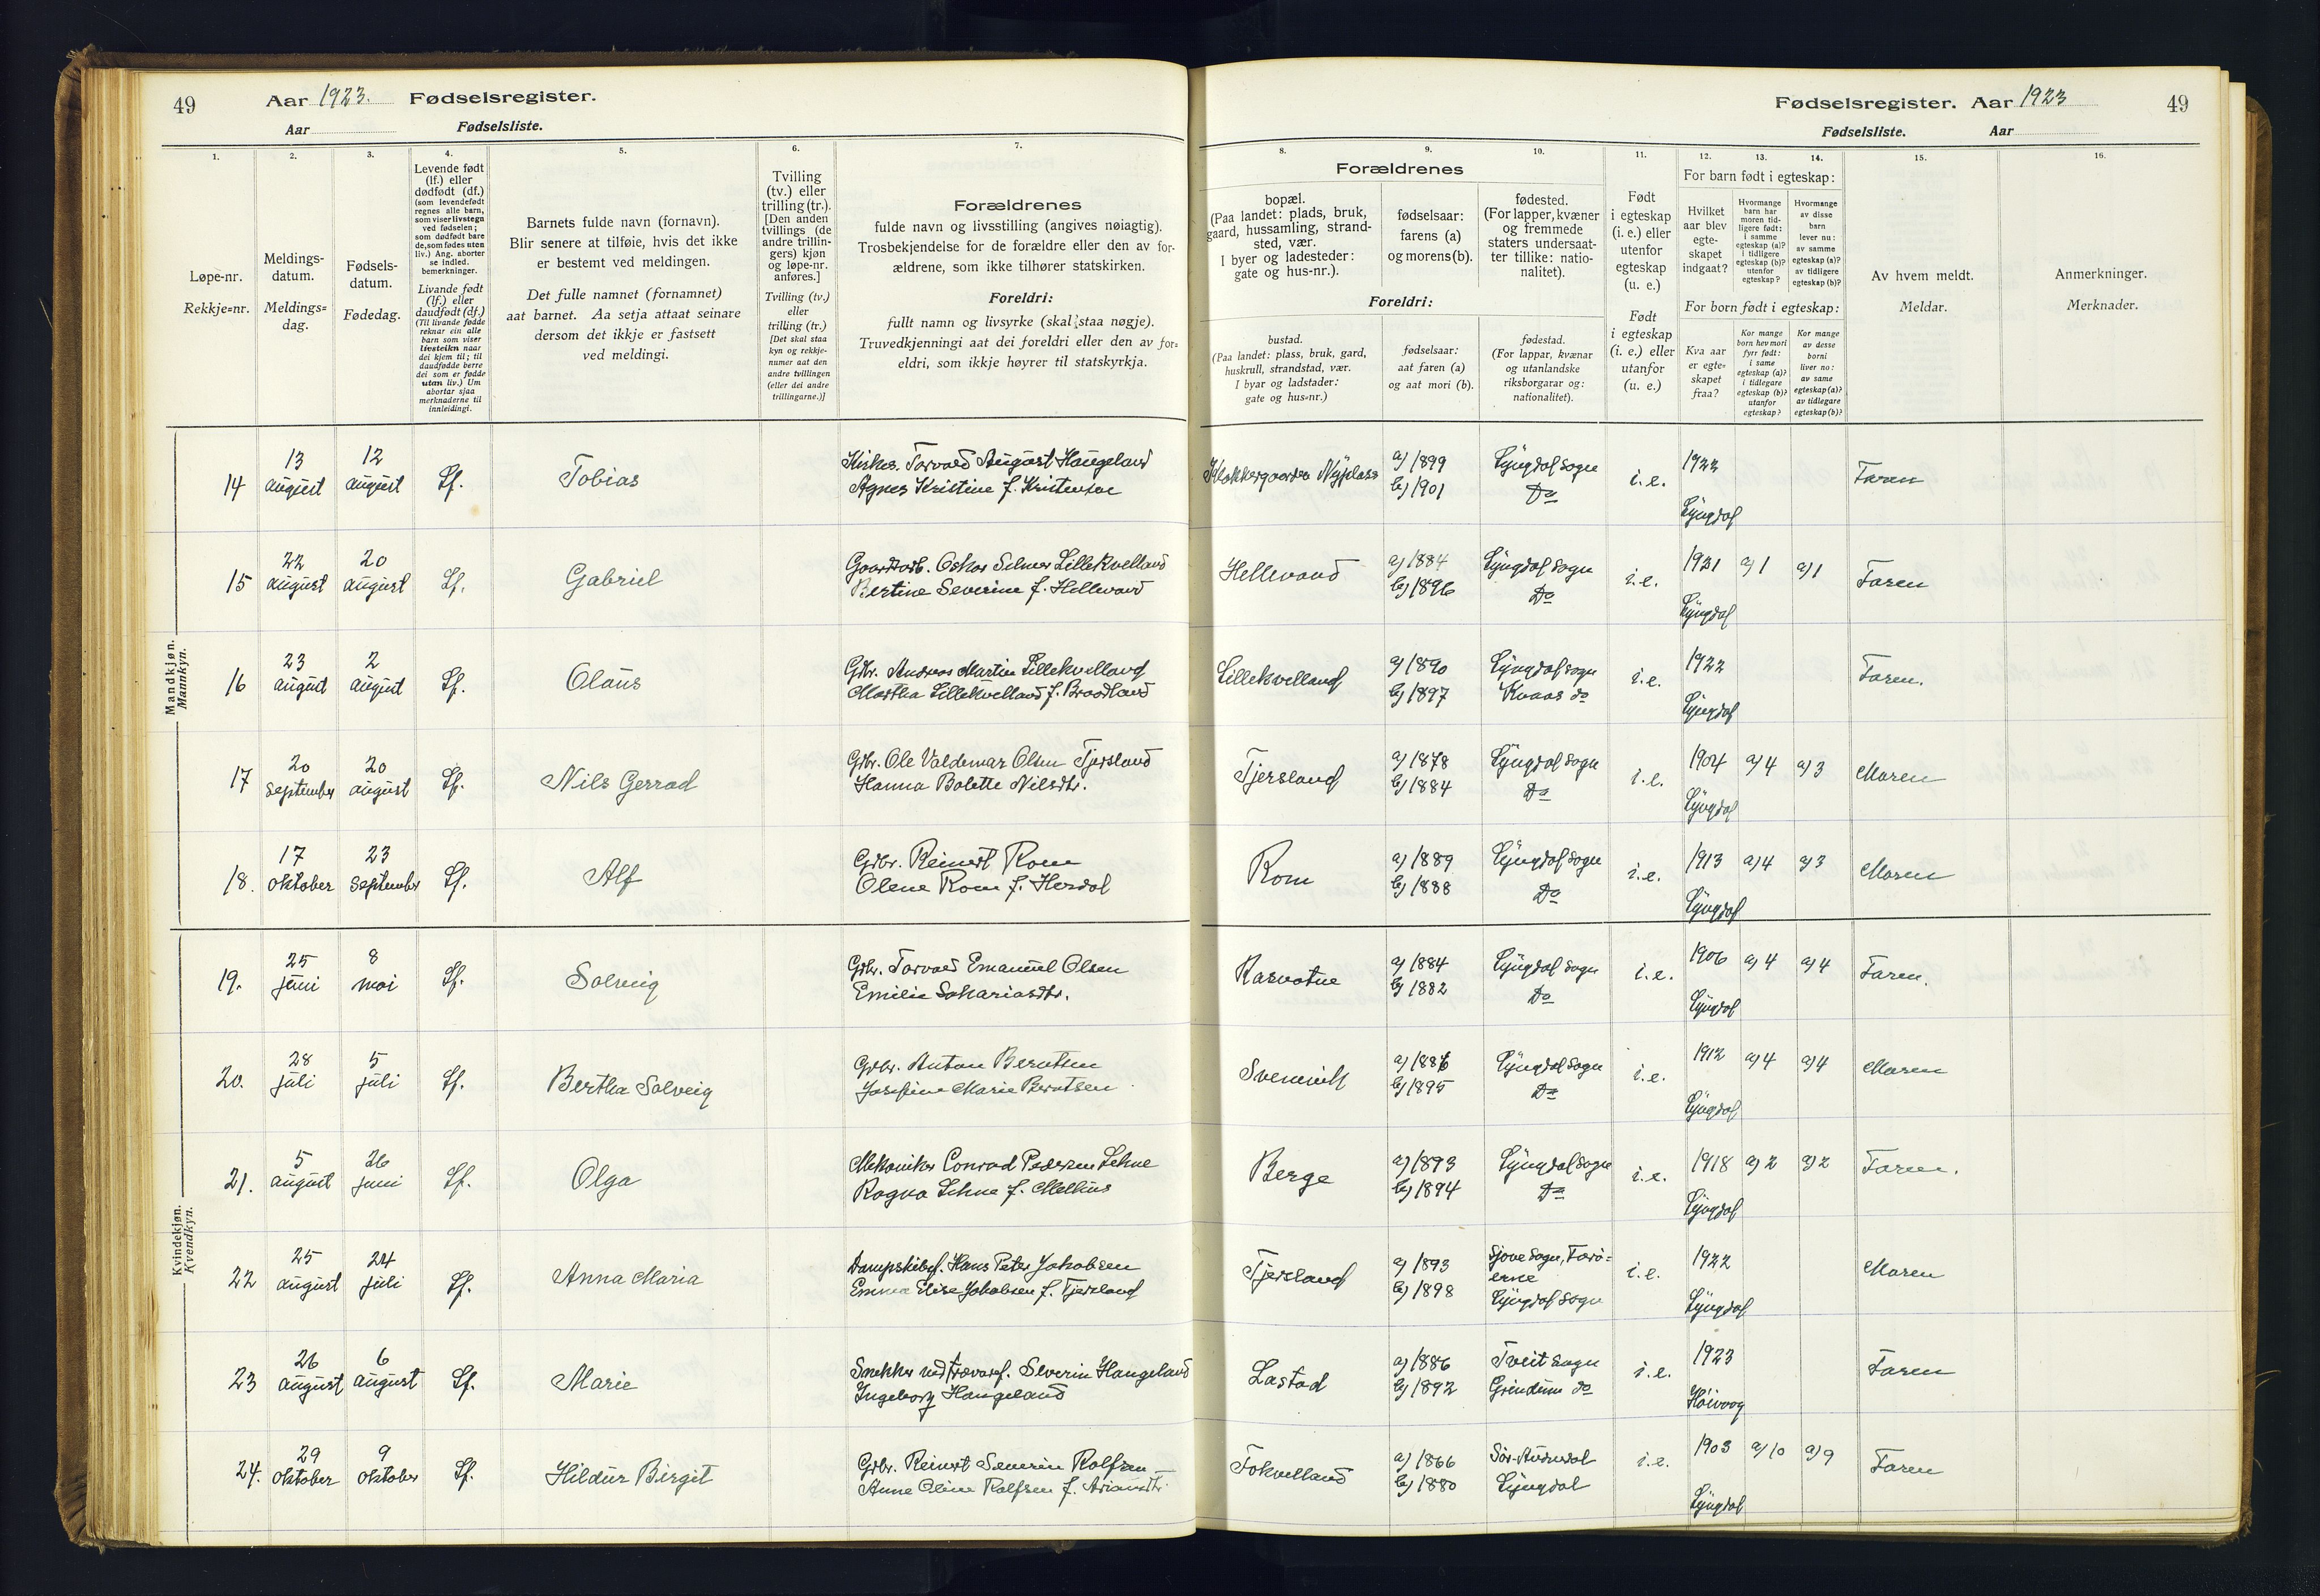 49 Aar 1923. Fødselsregister.
Aar Fødselsliste.
1. 2. 3. 4. 5. 6. 7.
Løpe-nr.
Rekkje=nr.
Meldings-
datum.
Meldings=
dag.
Fødsels-
datum.
Fødedag.
Levende født
(lf.) eller
dødfødt (df.)
(som levendefødt
regnes alle barn,
som viser livstegn
ved fødselen;
som dødfødt bare
de, som fødes uten
liv.) Ang. aborter
se indled.
bemerkninger.
Livande født
(lf.) eller
daudfødt (df.)
(Til livande fødde
reknar ein alle
barn som viser
livsteikn naar
dei kjem til; til
daudfødde berre
dei som er fødde
utan liv.) Um
abortar sjaa
merknaderne til
innleidingi.
Barnets fulde navn (fornavn).
Blir senere at tilføie, hvis det ikke
er bestemt ved meldingen.
Det fulle namnet (fornamnet)
aat barnet. Aa setja attaat seinare
dersom det ikkje er fastsett
ved meldingi.
Tvilling
(tv.) eller
trilling (tr.).
[Den anden
tvillings (de
andre trillin-
gers) kjøn
og løpe-nr.
anføres.]
Tvilling (tv.)
eller
trilling (tr.)
[Det skal staa
kyn og rekkje-
numer aat den
andre tvillingen
(eller dei andre
trillingarne.)]
Forældrenes
fulde navn og livsstilling (angives nøiagtig).
Trosbekjendelse for de forældre eller den av for-
ældrene, som ikke tilhører statskirken.
Foreldri:
fullt namn og livsyrke (skal staa nøgje).
Truvedkjenningi aat dei foreldri eller den av for=
eldri, som ikkje høyrer til statskyrkja.
Mandkjøn.
Mannkyn.
14 13 august 12 august Lf. Tobias
Torvald August Haugeland
Agnes Kristine f. Kristensen
15 22 august 20 august Lf. Gabriel
Oskar Selmer Lillekvelland
Bertine Severine f. Hellevand
16 23 august 2 august Lf. Olaus
Gbr. Andreas Martin Lillekvelland
Martha Lillekvelland f. Braadland
17 20 september 20 august Lf. Nils Gerrad
Gbr. Ole Valdemar Olsen Tjersland
Hanna Bolette Nilsdtr.
18. 17 oktober 23 september Lf. Alf
Gbr. Reinert Rom
Olene Rom f. Herdal
Kvindekjøn.
Kvendkyn.
19. 25 juni 8 mai Lf. Solveig
Gbr. Torvald Emanuel Olsen
Emilie Sakariasdtr.
20. 28 juli 5 juli Lf. Bertha Solveig
Gbr. Anton Berntsen
Josefine Marie Berntsen
21. 5 august 26 juni Lf. Olga
Mekaniker Conrad Pedersen Lehne
Ragna Lehne f. Melhus
22 25 august 24 juli Lf. Anna Maria
Hans Peter Jakobsen
Emma Elise Jakobsen f. Tjersland
23 26 august 6 august Lf. Marie
Snekker ved Severin Haugeland
Ingeborg Haugeland
24. 29 oktober 9 oktober Lf. Hildur Birgit
Gbr. Reinert Severin Rolfsen
Anne Oline Rolfsen f.
Fødselsregister. Aar 1923 49
Fødselsliste. Aar
8. 9. 10. 11. 12. 13. 14. 15. 16.
Forældrenes
bopæl.
(Paa landet: plads, bruk,
gaard, hussamling, strand-
sted, vær.
I byer og ladesteder:
gate og hus-nr.).
fødselsaar:
farens (a)
og morens (b).
fødested.
(For lapper, kvæner
og fremmede
staters undersaat-
ter tillike: natio-
nalitet).
Foreldri:
bustad.
(Paa landet: plass, bruk, gard,
huskrull, strandstad, vær.
I byar og ladstader:
gate og hus=nr.)
fødselsaar:
aat faren (a)
og aat mori (b).
fødestad.
(For lappar, kvænar
og utanlandske
riksborgarar og:
nationalitet).
Født
i egteskap
(i. e.) eller
utenfor
egteskap
(u. e.)
Født
i egteskap
(i. e.) eller
utanfor
(u. e.)
For barn født i egteskap:
Hvilket
aar blev
egte-
skapet
indgaat?
Hvormange
barn har
moren tid-
ligere født:
i samme
egteskap (a)?
i tidligere
egteskap (b)?
utenfor
egteskap?
Hvormange
av disse
barn
lever nu:
av samme
egteskap (a)?
av tidligere
egteskap (b)?
For born født i egteskap:
Kva aar
er egte-
skapet
fraa?
Kor mange
born hev mori
fyrr født:
i same
egteskap (a)?
i tidlegare
egteskap (b)?
utanfor
egteskap?
Kor mange
av desse
borni
liver no:
av same
egteskap (a)?
av tidlegare
egteskap (b)?
Av hvem meldt.
Meldar.
Anmerkninger.
Merknader.
Nyplass a) 1899 Lyngdal sogn i.e. 1922 Faren
b) 1901 Do Lyngdal
Hellevand a) 1884 Lyngdal sogn i.e. 1921 a) 1 a) 1 Faren
b) 1896 Do Lyngdal
Lillekvelland a) 1890 Lyngdal sogn i.e. 1922 Faren.
b) 1897 Kvaas do Lyngdal
Tjersland a) 1878 Lyngdal sogn i.e. 1904 a) 4 a) 3 Moren
b) 1884 Do Lyngdal
Rom a) 1889 Lyngdal sogn i.e. 1913 a) 4 a) 3 Moren
b) 1888 Do Lyngdal
Rasvatne a) 1884 Lyngdal sogn i.e. 1906 a) 4 a) 4 Faren.
b) 1882 Do Lyngdal
Svenevik a) 1886 Lyngdal sogn i.e. 1912 a) 4 a) 4 Moren
b) 1895 Do Lyngdal
Berge a) 1893 Lyngdal sogn i.e. 1918 a) 2 a) 2 Faren.
b) 1894 Do Lyngdal
Tjersland a) 1893 sogn, Færø- i.e. 1922 Moren
erne
b) 1898 Lyngdal sogn Lyngdal
Lastad a) 1886 Tveit sogn i.e. 1923 Faren
b) 1892 Grindum do Høivaag
Fokvelland a) 1866 Sør-Audnedal i.e. 1903 a) 10 a) 9 Faren
b) 1880 Lyngdal Lyngdal